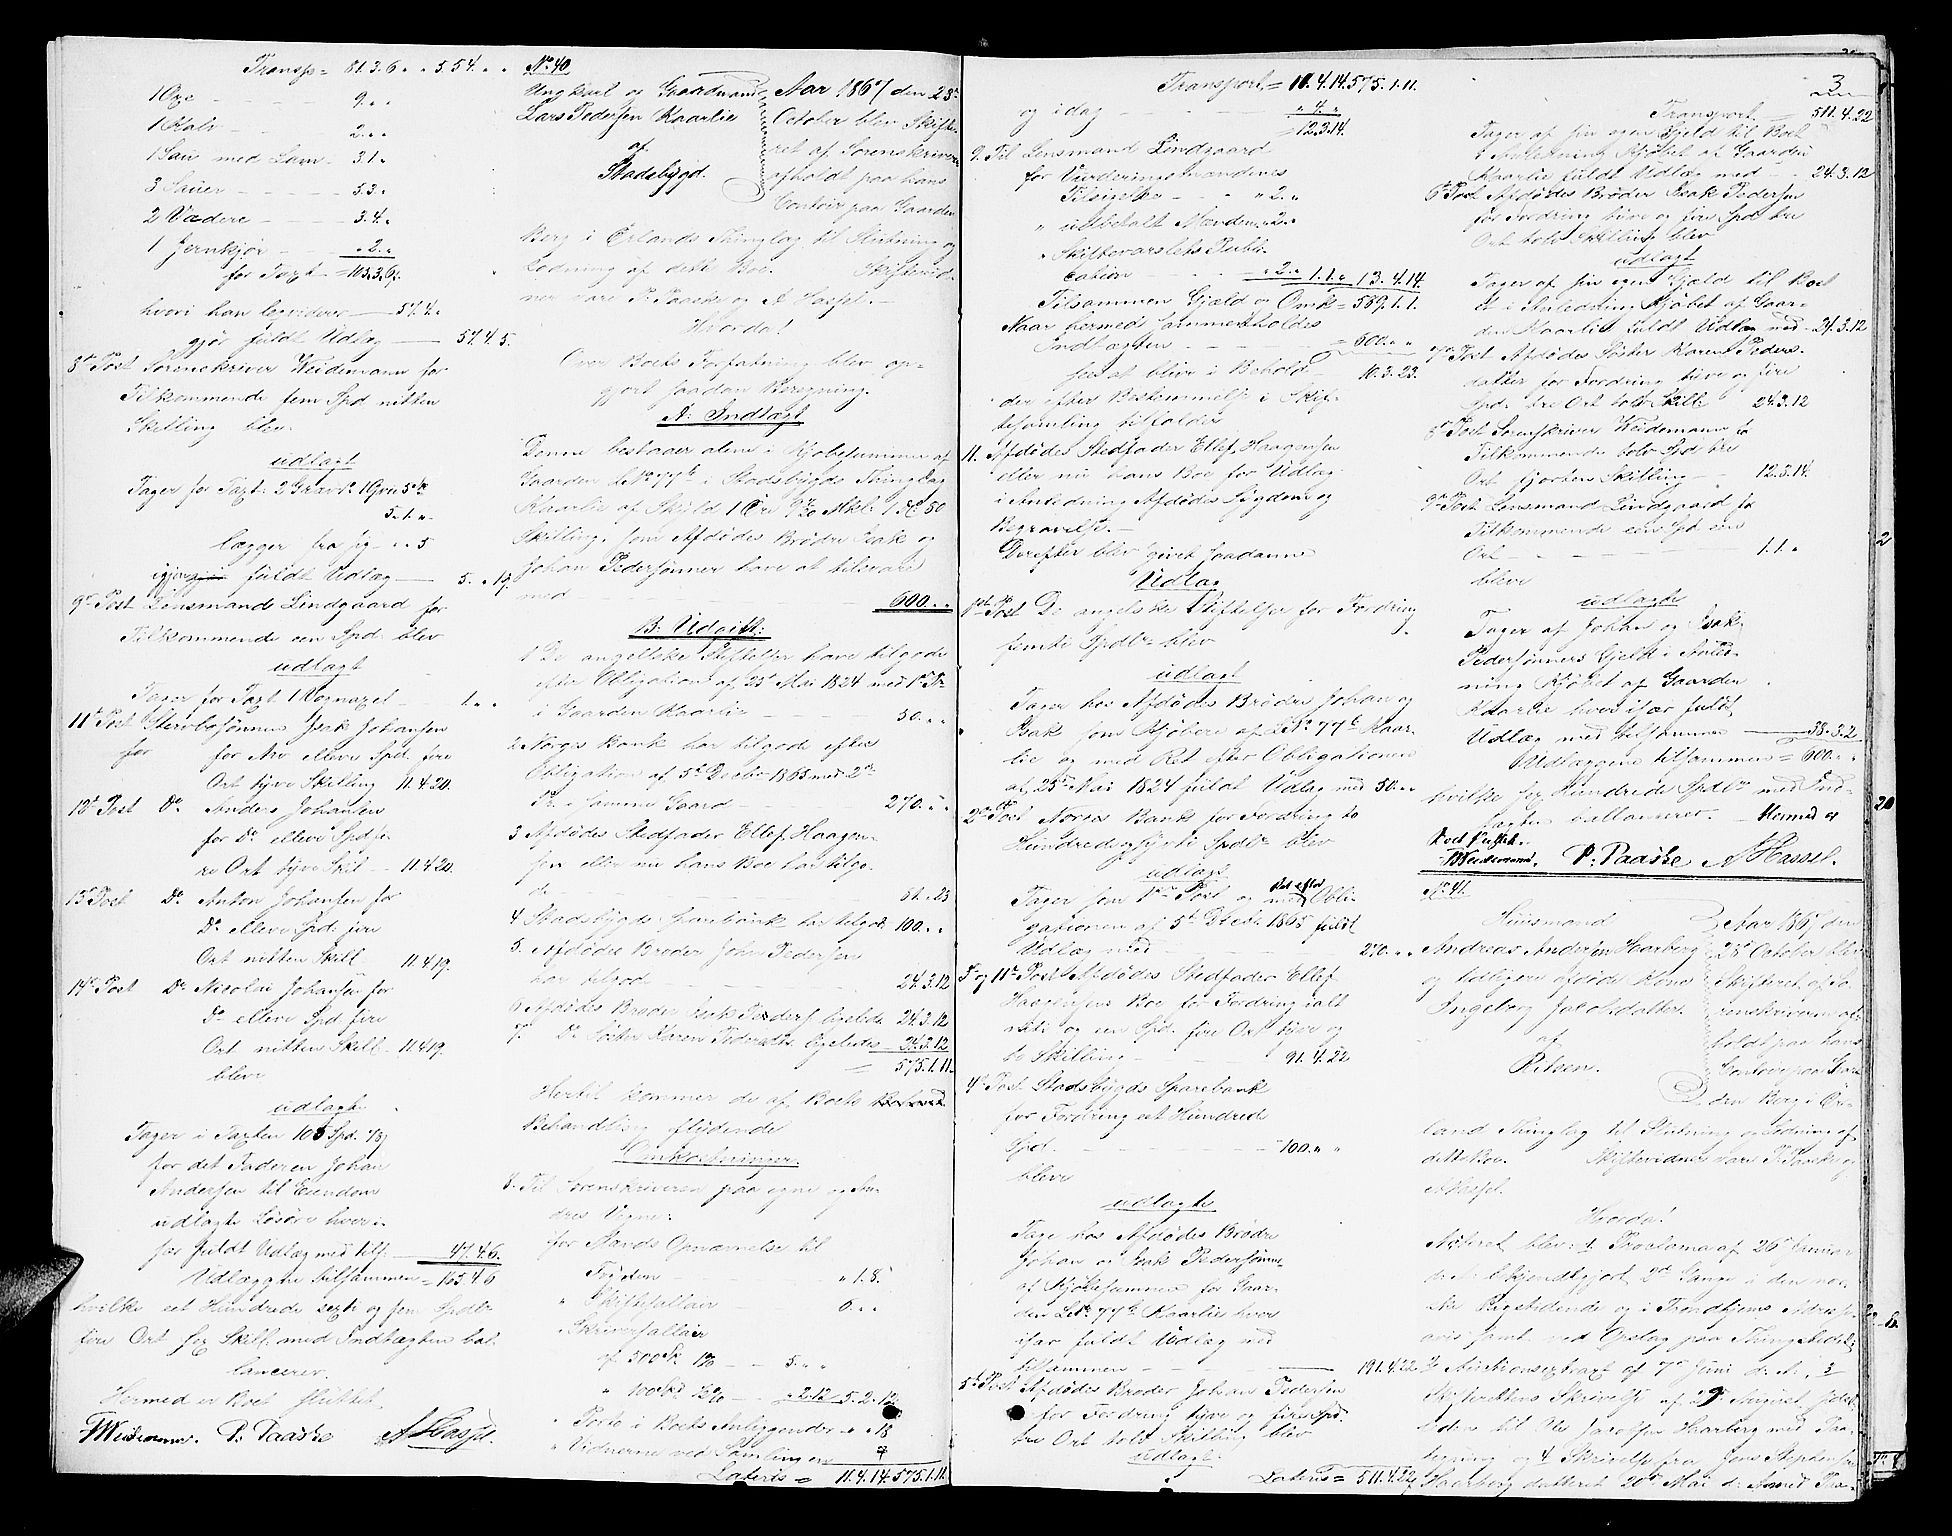 Transp = 81.3.6. „ 5.54. „
1 Oxe 9. „
1 Kalv 2. „
1 Sau med Lam 3.1.
3 Sauer 5.3.
2 Vædere 3.4.
1 Jernkjør „ 2. „
for Taxt = 103.3.6.
hvori han leqviderer 57.4.
gjør fuldt Udlæg 57.4.5.
8de Post Sorenskriver Weidemann for
Tilkommende fem Spd nitten
Skilling blev
udlagt
Tager for Taxt: 2
5.1. „
lægger fra sig „ „ 5
igjen fuldt Udlæg 5. „ 19.
9de Post Lensmand Lindgaard for
Tilkommende een Spd. blev
udlagt
Tager for Taxt 1 1. „
11te Post Sterbosønnen Isak Johansen
for for Arv elleve Spd. fire
Ort tyve Skilling 11.4.20.
12te Post Do Anders Johansen
for Do elleve Spd fi-
re Ort tyve Skil 11.4.20.
13de Post Do Anton Johansen for
Do elleve Spd. fire
Ort nitten Skill 11.4.19.
14de Post Do Nicolai Johansen for
Do elleve Spd fire
Ort nitten Skill 11.4.19.
bleve
udlagte
Tager i Taxten 103 Spd.
for det Faderen Johan
Andersen til Eiendom
udlagte Løsøre hver i-
sær fuldt Udlæg med tils. 47.4.6.
Udlæggene tilsammen = 165.4.6
hvilke eet Hundrede sexti og fem Spdlr
fire Ort sex Skill. med Indtægten bal-
lancerer.
Hermed er Boet sluttet.
Weidemann. P. Paaske A Hassel.
No 40
Ungkarl og Gaardmand
Lars Pedersen Kaarlie
af
Stadsbygd.
Aar 1867 den 23de
October blev Skifte-
ret af Sorenskriveren
afholdt paa hans
Contoir paa Gaarden
Berg i Ørlands Thinglag til Slutning og
Lodning af dette Boe. Skiftevid-
ner vare P. Paaske og A Hassel.
Hvorda!
Over Boets Forfatning blev op-
gjort saadan Beregning.
A: Indtægt
Denne bestaaer alene i Kjøbesummen af
Gaarden LNo 77b i Stadsbygds Thinglag
Kaarlie af Skyld 1 Øre 50
Skilling, som Afdødes Brødre Isak og
Johan Pedersønner have at tilsvare
med 600. „ „
B. Udgift:
1 De angellske Stiftelser have tilgode
efter Obligation af 25de Mai 1824 med 1ste Pr.
i Gaarden Kaarlie 50. „ „
2 Norges Bank har tilgode efter
Obligation af 5te Decbr 1865 med 2den
Pr. i samme Gaard 270. „ „
3 Afdødes Stedfader Ellef Haagen-
sen eller nu hans Boe har tilgo-
de 81. „ 23
4 Stadsbygds Sparebank har tilgode 100. „ „
5. Afdødes Broder Johan Pedersen
har tilgode 24.3.12
6 Afdødes Broder Isak Peders. ligeledes 24.3.12
7. Do Søster Karen Pedersdtr. ligeledes 24.3.12
= 575.1.11.
Hertil kommer de af Boets
Behandling flydende
Omkostninger.
8. Til Sorenskriveren paa egne og An-
dres Vegne:
for Mænds Opnævnelse til
„ 1.8.
„ Skiftesallair 6. „ „
„ Skriversallair
af 500 Spd 1% 5. „ „
„ 100 Spd ½% „ 2.12 5.2.12
„ Porto i Boets Anliggender „ „ 18
„ Vidnerne ved Samlingerne
Lateris = 11.4.14. 575.1.11.
Transport = 11.4.14. 575.1.11.
og idag „ 4. „
= 12.3.14.
9. Til Lensmand Lindgaard
for Vurderingsmændenes
Tilsigelse „ 2. „
„ udbetalt Mændene „ 2. „
„ Skiftevarslets Publi-
cation „ 2. „ 1.1. „ 13.4.14.
Tilsammen Gjæld og Omk = 589.1.1.
Naar hermed sammenholdes
Indtægten = 600. „ „
sees at blive i Behold 10.3.23.
der efter Bestemmelse i Skif-
tesamling tilfalder
11. Afdødes Stedfader Ellef Haagensen
eller nu hans Boe for Udlæg
i Anledning Afdødes Sygdom og
Begravelse.
Derefter blev givet saadanne
Udlæg
1ste Post De angelske Stiftelser for Fordring
femti Spdlr. blev
udlagt
Tager hos Afdødes Brødre Johan og
Isak som Kjøbere af LNo 77b Kaar-
lie og med Ret efter Obligationen
af 25de Mai 1824 fuldt Udlæg med 50. „ „
2den Post Norges Bank for Fordring to
Hundrede og sytti Spdlr. blev
udlagt
Tager som 1ste Post og Ret efter Obli-
gationen af 5te Decbr. 1865 fuldt
Udlæg med 270. „ „
3de og 11te Post Afdødes Stedfader Ellef
Haagensens Boe for Fordring ialt
nitti og een Spd. fire Ort tyve og
to Skilling 91.4.22
4de Post Stadsbygds Sparebank
for Fordring eet Hundrede
Spd. 100. „ „
bleve
udlagte
Tage hos Afdødes Brødre
Johan og Isak Pedersønner
af Kjøbesummen for Gaar-
den LNo. 77b Kaarlie hver
især fuldt Udlæg med
tilsammen 191.4.22
5te Post Afdødes Broder Johan Pedersen
for Fordring tyve og fire Spd.
tre Ort tolv Skilling blev
udlagt:
Lateris = 511.4.22
3
Transport 511.4.22
Tager af sin egen Gjeld til Boet
i Anledning Kjøbet af Gaarden
Kaarlie fuldt Udlæg med 24.3.12
6te Post Afdødes Broder Isak Pedersen
for Fordring tyve og fire Spd tre
Ort tolv Skilling blev
udlagt
Tager af sin egen Gjæld til Boet
i Anledning Kjøbet af Gaar-
den Kaarlie fuldt Udlæg med 24.3.12
7de Post Afdødes Søster Karen Peders-
datter for Fordring tyve og fire
Spd. tre Ort tolv Skill 24.3.12
8de Post Sorenskriver Weidemann for
Tilkommende tolv Spd tre
Ort fjorten Skilling 12.3.14.
9de Post Lensmand Lindgaard for
Tilkommende een Spd een
Ort 1.1. „
bleve
udlagte
Tager af Johan og Isak
Pedersønners Gjeld i Anled-
ning Kjøbet af Gaarden
Kaarlie hver især fuldt
Udlæg med tilsammen 38.3.2
Udlæggene tilsammen = 600. „ „
hvilke sex Hundrede Spdlr med Ind-
tægten ballancerer. Hermed er
Boet sluttet.
Weidemann. P. Paaske A Hassel.
No 41.
Huusmand
Andreas Andersen Haarberg
og tidligere afdøde Kone
Ingeborg Jacobsdatter
af
Ritsen.
Aar 1867 den
23de October blev
Skifteret af So-
renskriveren af-
holdt paa hans
Contoir paa Gaar-
den Berg i Ør-
land Thinglag til Slutning og Lodning af
dette Boe. Skiftevidner vare P. Paaske og
A Hassel.
Hvorda!
Acteret blev: 1. Proclama af 26de Januar
d. A. bekjendtgjort 2de Gange i den nor-
ske Rigstidende og i Trondhjems Adresse-
avis samt ved Opslag paa Thingstedet,
2 Auctionsextract af 7de Juni d. A., 3
Skifterettens Skrivelse af 29 August
til Ole Jacobsen Haarberg med Paa-
tegning og 4 Skrivelse fra Jens Stephensen
Haarberg datteret 20de Mai d. A. med Paa-